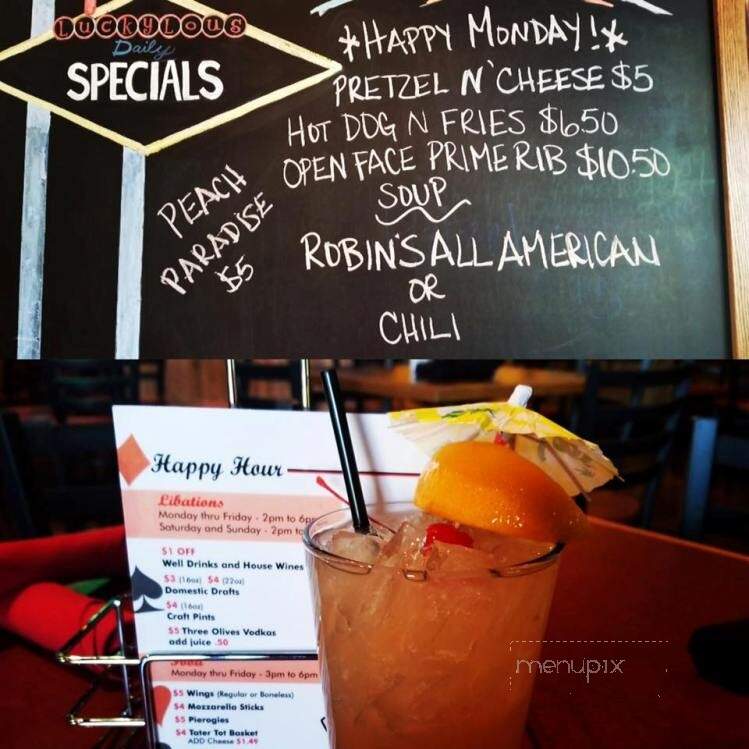 LUCKYLOUS
Daily
SPECIALS
*HAPPY MONDAY!*
PRETZEL N' CHEESE $5
HOT DOG N FRIES $6.50
OPEN FACE PRIME RIB $10.50
SOUP
ROBIN'S ALL AMERICAN
OR
CHILI
PEACH
PARADISE
$5
Happy Hour
Libations
Monday thru Friday - 2pm to 6pm
Saturday and Sunday - 2pm to
$1 OFF
Well Drinks and House Wines
$3 (16oz) $4 (22oz)
Domestic Drafts
$4 (16oz)
Craft Pints
$5 Three Olives Vodkas
add juice .50
Food
Monday thru Friday - 3pm to 6pm
$5 Wings (Regular or Boneless)
$4 Mozzarella Sticks
$5 Pierogies
$4 Tater Tot Basket
ADD Cheese $1.49
menupix